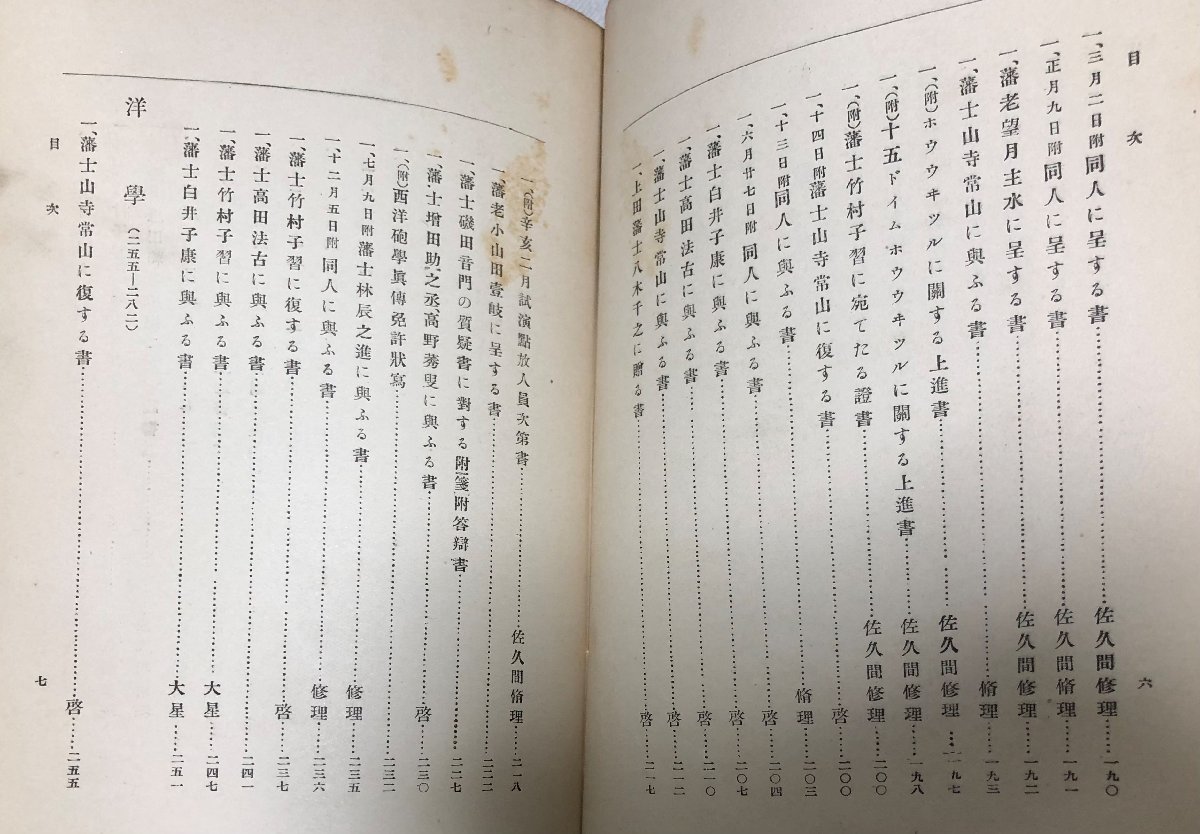 目次
六
一、三月二日附同人に呈する書……佐久間修理……一九〇
一、正月九日附同人に呈する書……佐久間脩理……一九一
一、藩老望月主水に呈する書……佐久間修理……一九二
一、藩士山寺常山に與ふる書……脩理……一九三
一、(附)ホウウヰツルに關する上進書……佐久間修理……一九七
一、(附)十五ドイムホウウヰツルに關する上進書……佐久間修理……一九八
一、(附)藩士竹村子習に宛てたる證書……佐久間修理……二〇〇
一、十四日附藩士山寺常山に復する書……啓……二〇〇
一、十三日附同人に與ふる書……脩理……二〇三
一、六月廿七日附同人に與ふる書……啓……二〇四
一、藩士白井子康に與ふる書……啓……二〇七
一、藩士高田法古に與ふる書……啓……二一〇
一、藩士山寺常山に與ふる書……啓……二一二
一、上田藩士八木千之に贈る書……啓……二一七
一、(附)辛亥二月試演點放人員次第書……佐久間脩理……二一八
一、藩老小山田壹岐に呈する書……二二二
一、藩士磯田音門の質疑書に對する附箋附答辯書……二二七
一、藩士增田助之丞、高野莠叟に與ふる書……啓……二三〇
一、(附)西洋砲學眞傳免許狀寫……二三二
一、七月九日附藩士林辰之進に與ふる書……修理……二三五
一、十二月五日附同人に與ふる書……修理……二三六
一、藩士竹村子習に復する書……啓……二三七
一、藩士高田法古に與ふる書……二四一
一、藩士竹村子習に與ふる書……大星……二四七
一、藩士白井子康に與ふる書……大星……二五一
洋學(二五五—二八二)
一、藩士山寺常山に復する書……啓……二五五
目次
七